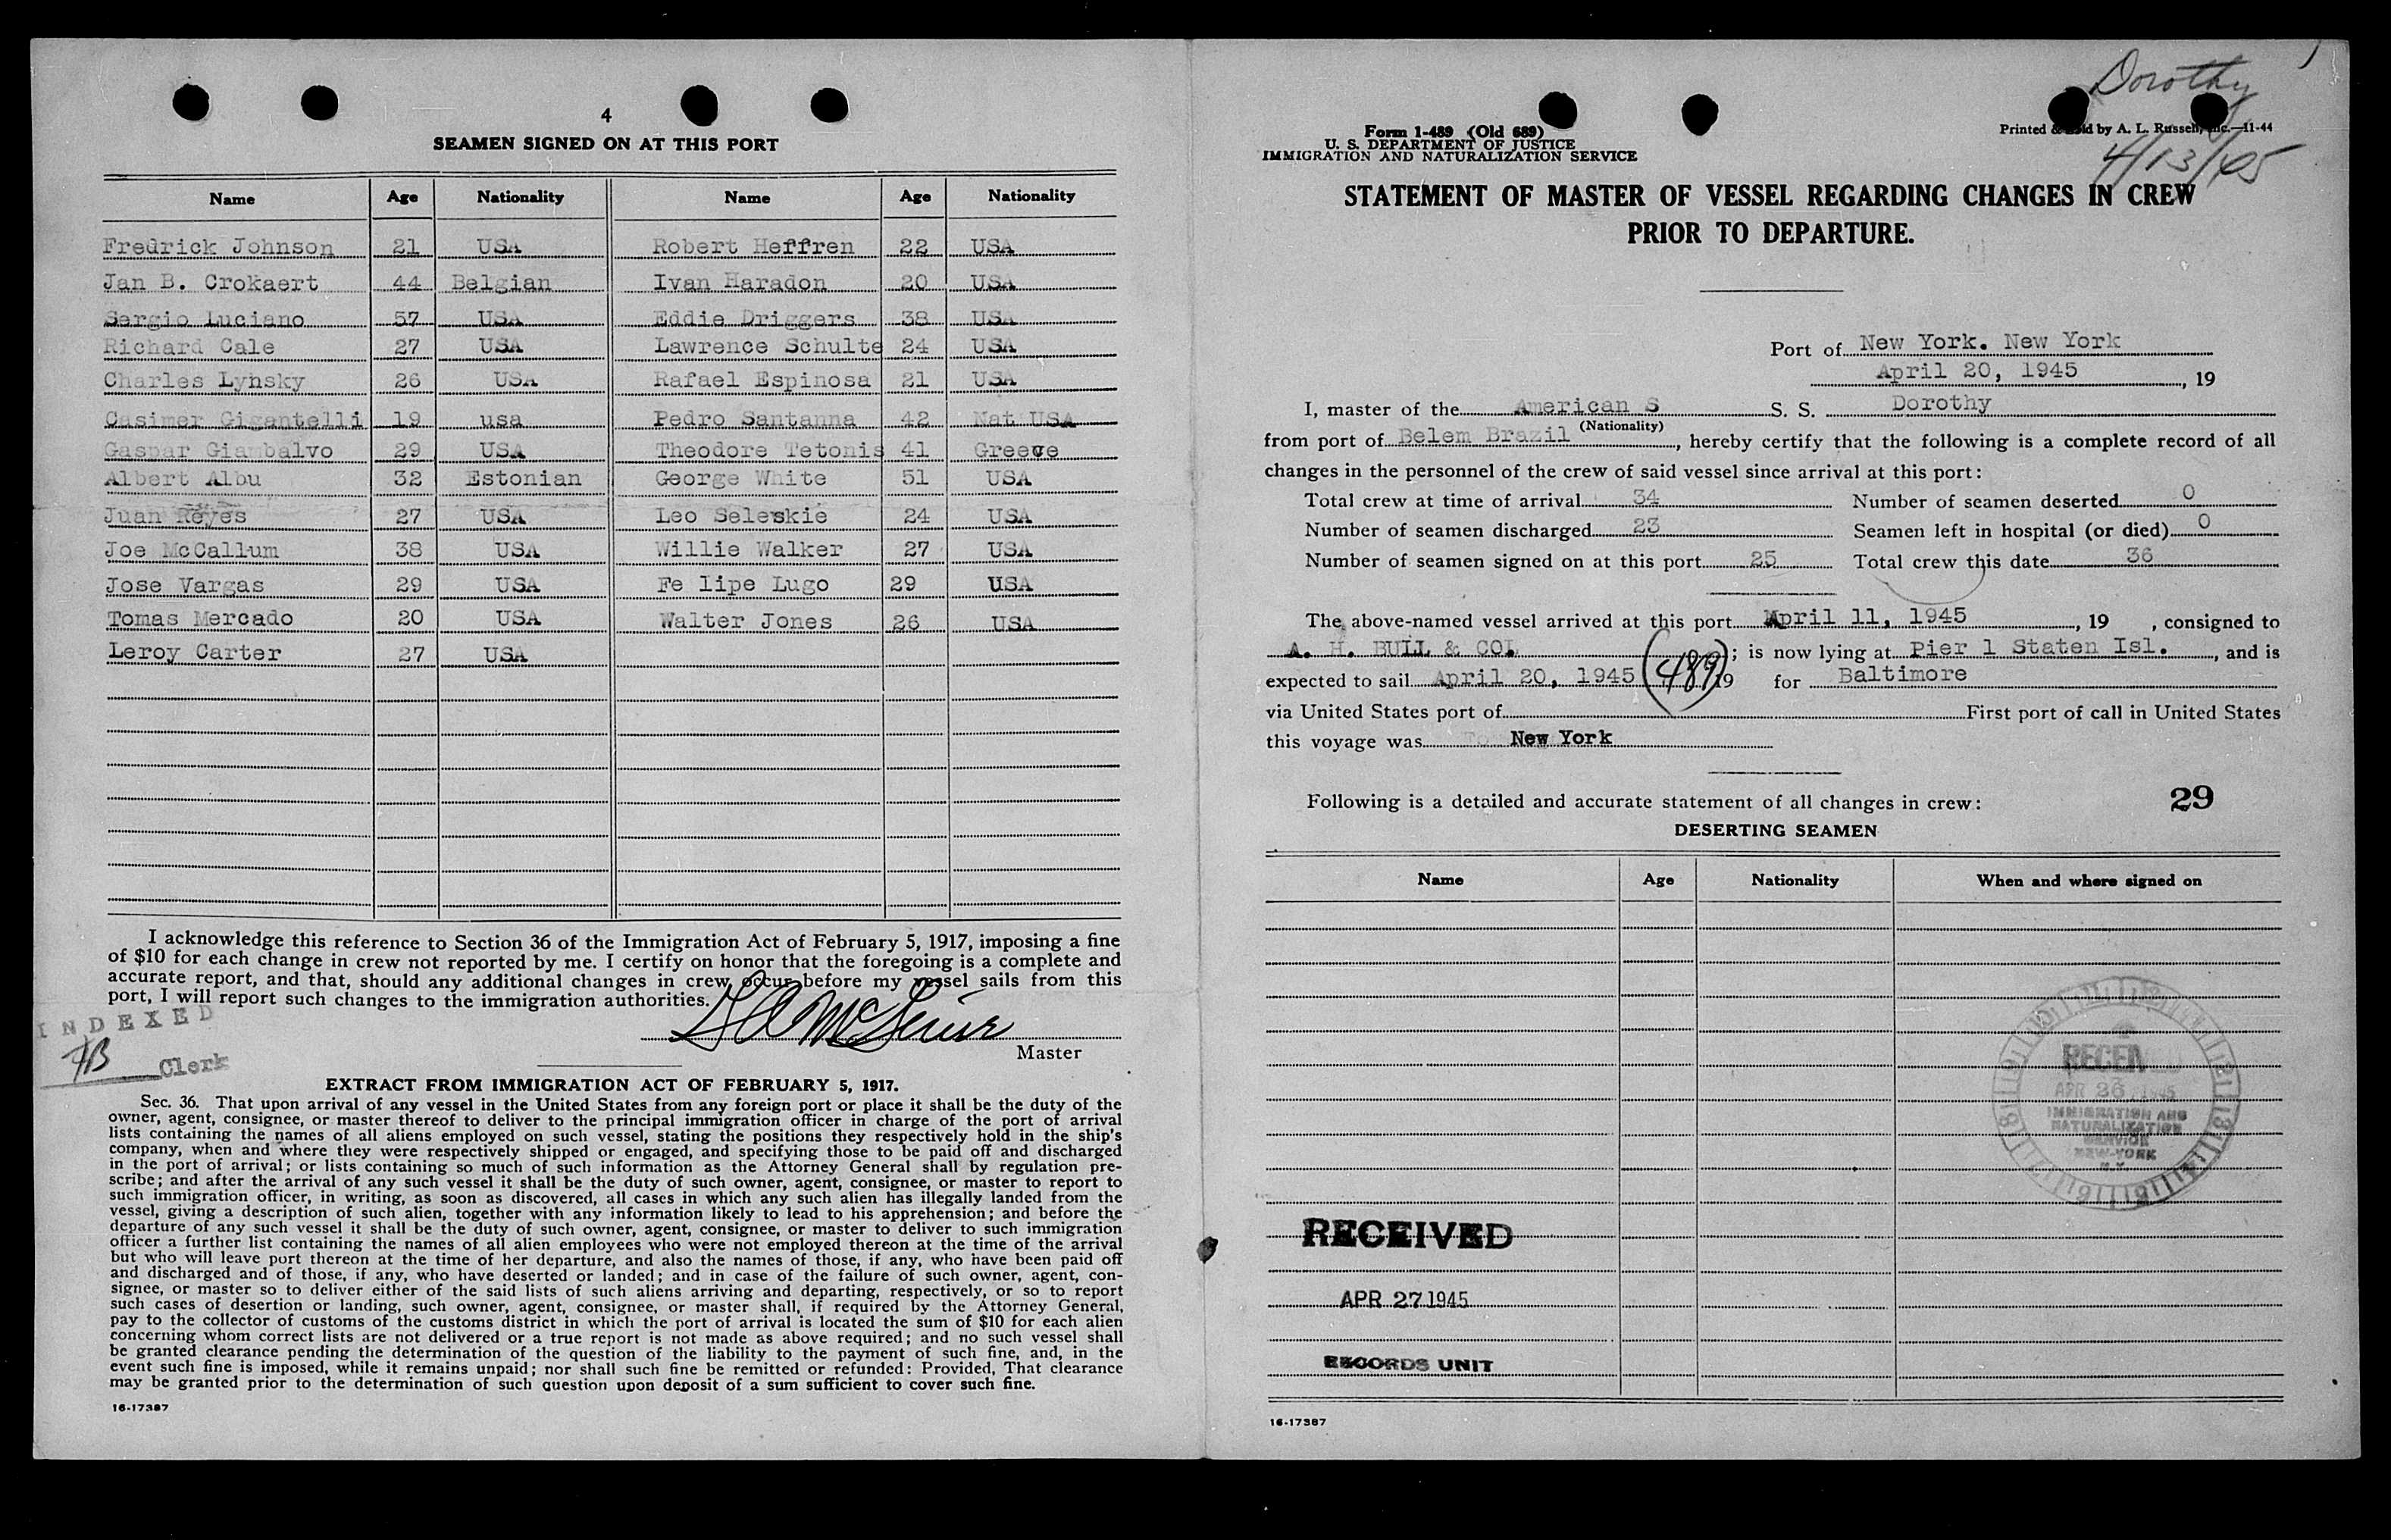 4
SEAMEN SIGNED ON AT THIS PORT
Name Age Nationality Name Age Nationality
Fredrick Johnson 21 USA Robert Heffren 22 USA
Jan B. Crokaert 44 Belgian Ivan Haradon 20 USA
Sergio Luciano 57 USA Eddie Driggers 38 USA
Richard Cale 27 USA Lawrence Schulte 24 USA
Charles Lynsky 26 USA Rafael Espinosa 21 USA
Casimer Gigantelli 19 usa Pedro Santanna 42 Nat USA
Gaspar Giambalvo 29 USA Theodore Tetonis 41 Greece
Albert Albu 32 Estonian George White 51 USA
Juan Reyes 27 USA Leo Seleskie 24 USA
Joe McCallum 38 USA Willie Walker 27 USA
Jose Vargas 29 USA Fe lipe Lugo 29 USA
Tomas Mercado 20 USA Walter Jones 26 USA
Leroy Carter 27 USA
I acknowledge this reference to Section 36 of the Immigration Act of February 5, 1917, imposing a fine
of $10 for each change in crew not reported by me. I certify on honor that the foregoing is a complete and
accurate report, and that, should any additional changes in crew occur before my vessel sails from this
port, I will report such changes to the immigration authorities.
INDEXED
Clerk
Master
EXTRACT FROM IMMIGRATION ACT OF FEBRUARY 5, 1917.
Sec. 36. That upon arrival of any vessel in the United States from any foreign port or place it shall be the duty of the
owner, agent, consignee, or master thereof to deliver to the principal immigration officer in charge of the port of arrival
lists containing the names of all aliens employed on such vessel, stating the positions they respectively hold in the ship's
company, when and where they were respectively shipped or engaged, and specifying those to be paid off and discharged
in the port of arrival; or lists containing so much of such information as the Attorney General shall by regulation pre-
scribe; and after the arrival of any such vessel it shall be the duty of such owner, agent, consignee, or master to report to
such immigration officer, in writing, as soon as discovered, all cases in which any such alien has illegally landed from the
vessel, giving a description of such alien, together with any information likely to lead to his apprehension; and before the
departure of any such vessel it shall be the duty of such owner, agent, consignee, or master to deliver to such immigration
officer a further list containing the names of all alien employees who were not employed thereon at the time of the arrival
but who will leave port thereon at the time of her departure, and also the names of those, if any, who have been paid off
and discharged and of those, if any, who have deserted or landed; and in case of the failure of such owner, agent, con-
signee, or master so to deliver either of the said lists of such aliens arriving and departing, respectively, or so to report
such cases of desertion or landing, such owner, agent, consignee, or master shall, if required by the Attorney General,
pay to the collector of customs of the customs district in which the port of arrival is located the sum of $10 for each alien
concerning whom correct lists are not delivered or a true report is not made as above required; and no such vessel shall
be granted clearance pending the determination of the question of the liability to the payment of such fine, and, in the
event such fine is imposed, while it remains unpaid; nor shall such fine be remitted or refunded: Provided, That clearance
may be granted prior to the determination of such question upon deposit of a sum sufficient to cover such fine.
16-17387
Dorothy
4/13/45
Form 1-489 (Old 689)
U. S. DEPARTMENT OF JUSTICE
IMMIGRATION AND NATURALIZATION SERVICE
Printed & Sold by A. L. Russell, Inc.—11-44
STATEMENT OF MASTER OF VESSEL REGARDING CHANGES IN CREW
PRIOR TO DEPARTURE.
Port of New York. New York
April 20, 1945, 19
I, master of the American S S. S. Dorothy
(Nationality)
from port of Belem Brazil, hereby certify that the following is a complete record of all
changes in the personnel of the crew of said vessel since arrival at this port:
Total crew at time of arrival 34 Number of seamen deserted 0
Number of seamen discharged 23 Seamen left in hospital (or died) 0
Number of seamen signed on at this port 25 Total crew this date 36
The above-named vessel arrived at this port April 11, 1945, 19 , consigned to
A. H. BULL & CO.; is now lying at Pier 1 Staten Isl., and is
expected to sail April 20, 1945 (489) 19 for Baltimore
via United States port of First port of call in United States
this voyage was New York
Following is a detailed and accurate statement of all changes in crew: 29
DESERTING SEAMEN
Name Age Nationality When and where signed on
RECEIVED
APR 26 1945
IMMIGRATION AND
NATURALIZATION
SERVICE
NEW-YORK
N.Y.
RECEIVED
APR 27 1945
RECORDS UNIT
16-17387